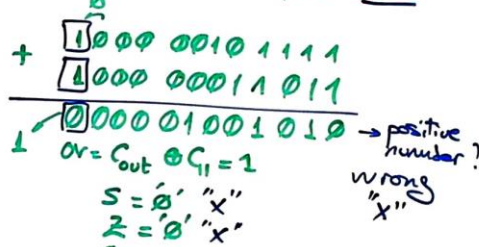 0
+ 1000 0010 1111
1000 00011 011
1 0000 01001010 → positive number?
OV = Cout ⊕ C11 = 1 wrong
S = '0' "x" "x"
Z = '0' "x"